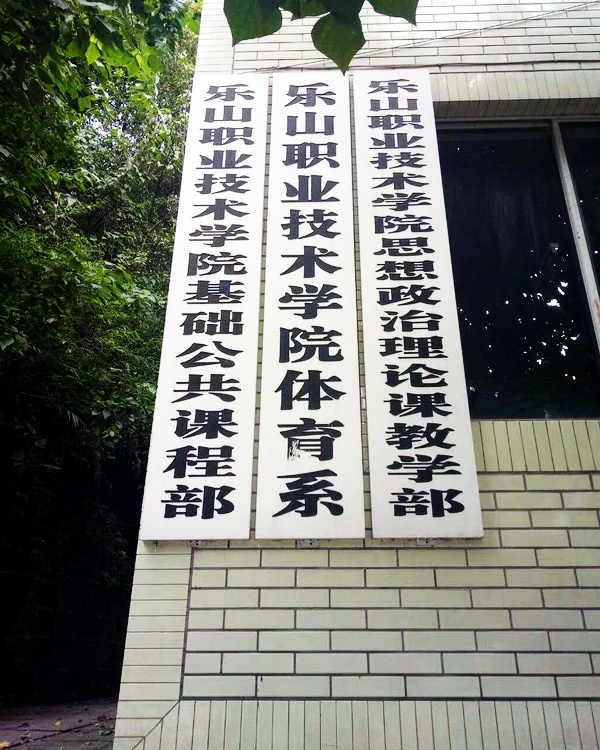 乐山职业技术学院基础公共课程部
乐山职业技术学院体育系
乐山职业技术学院思想政治理论课教学部